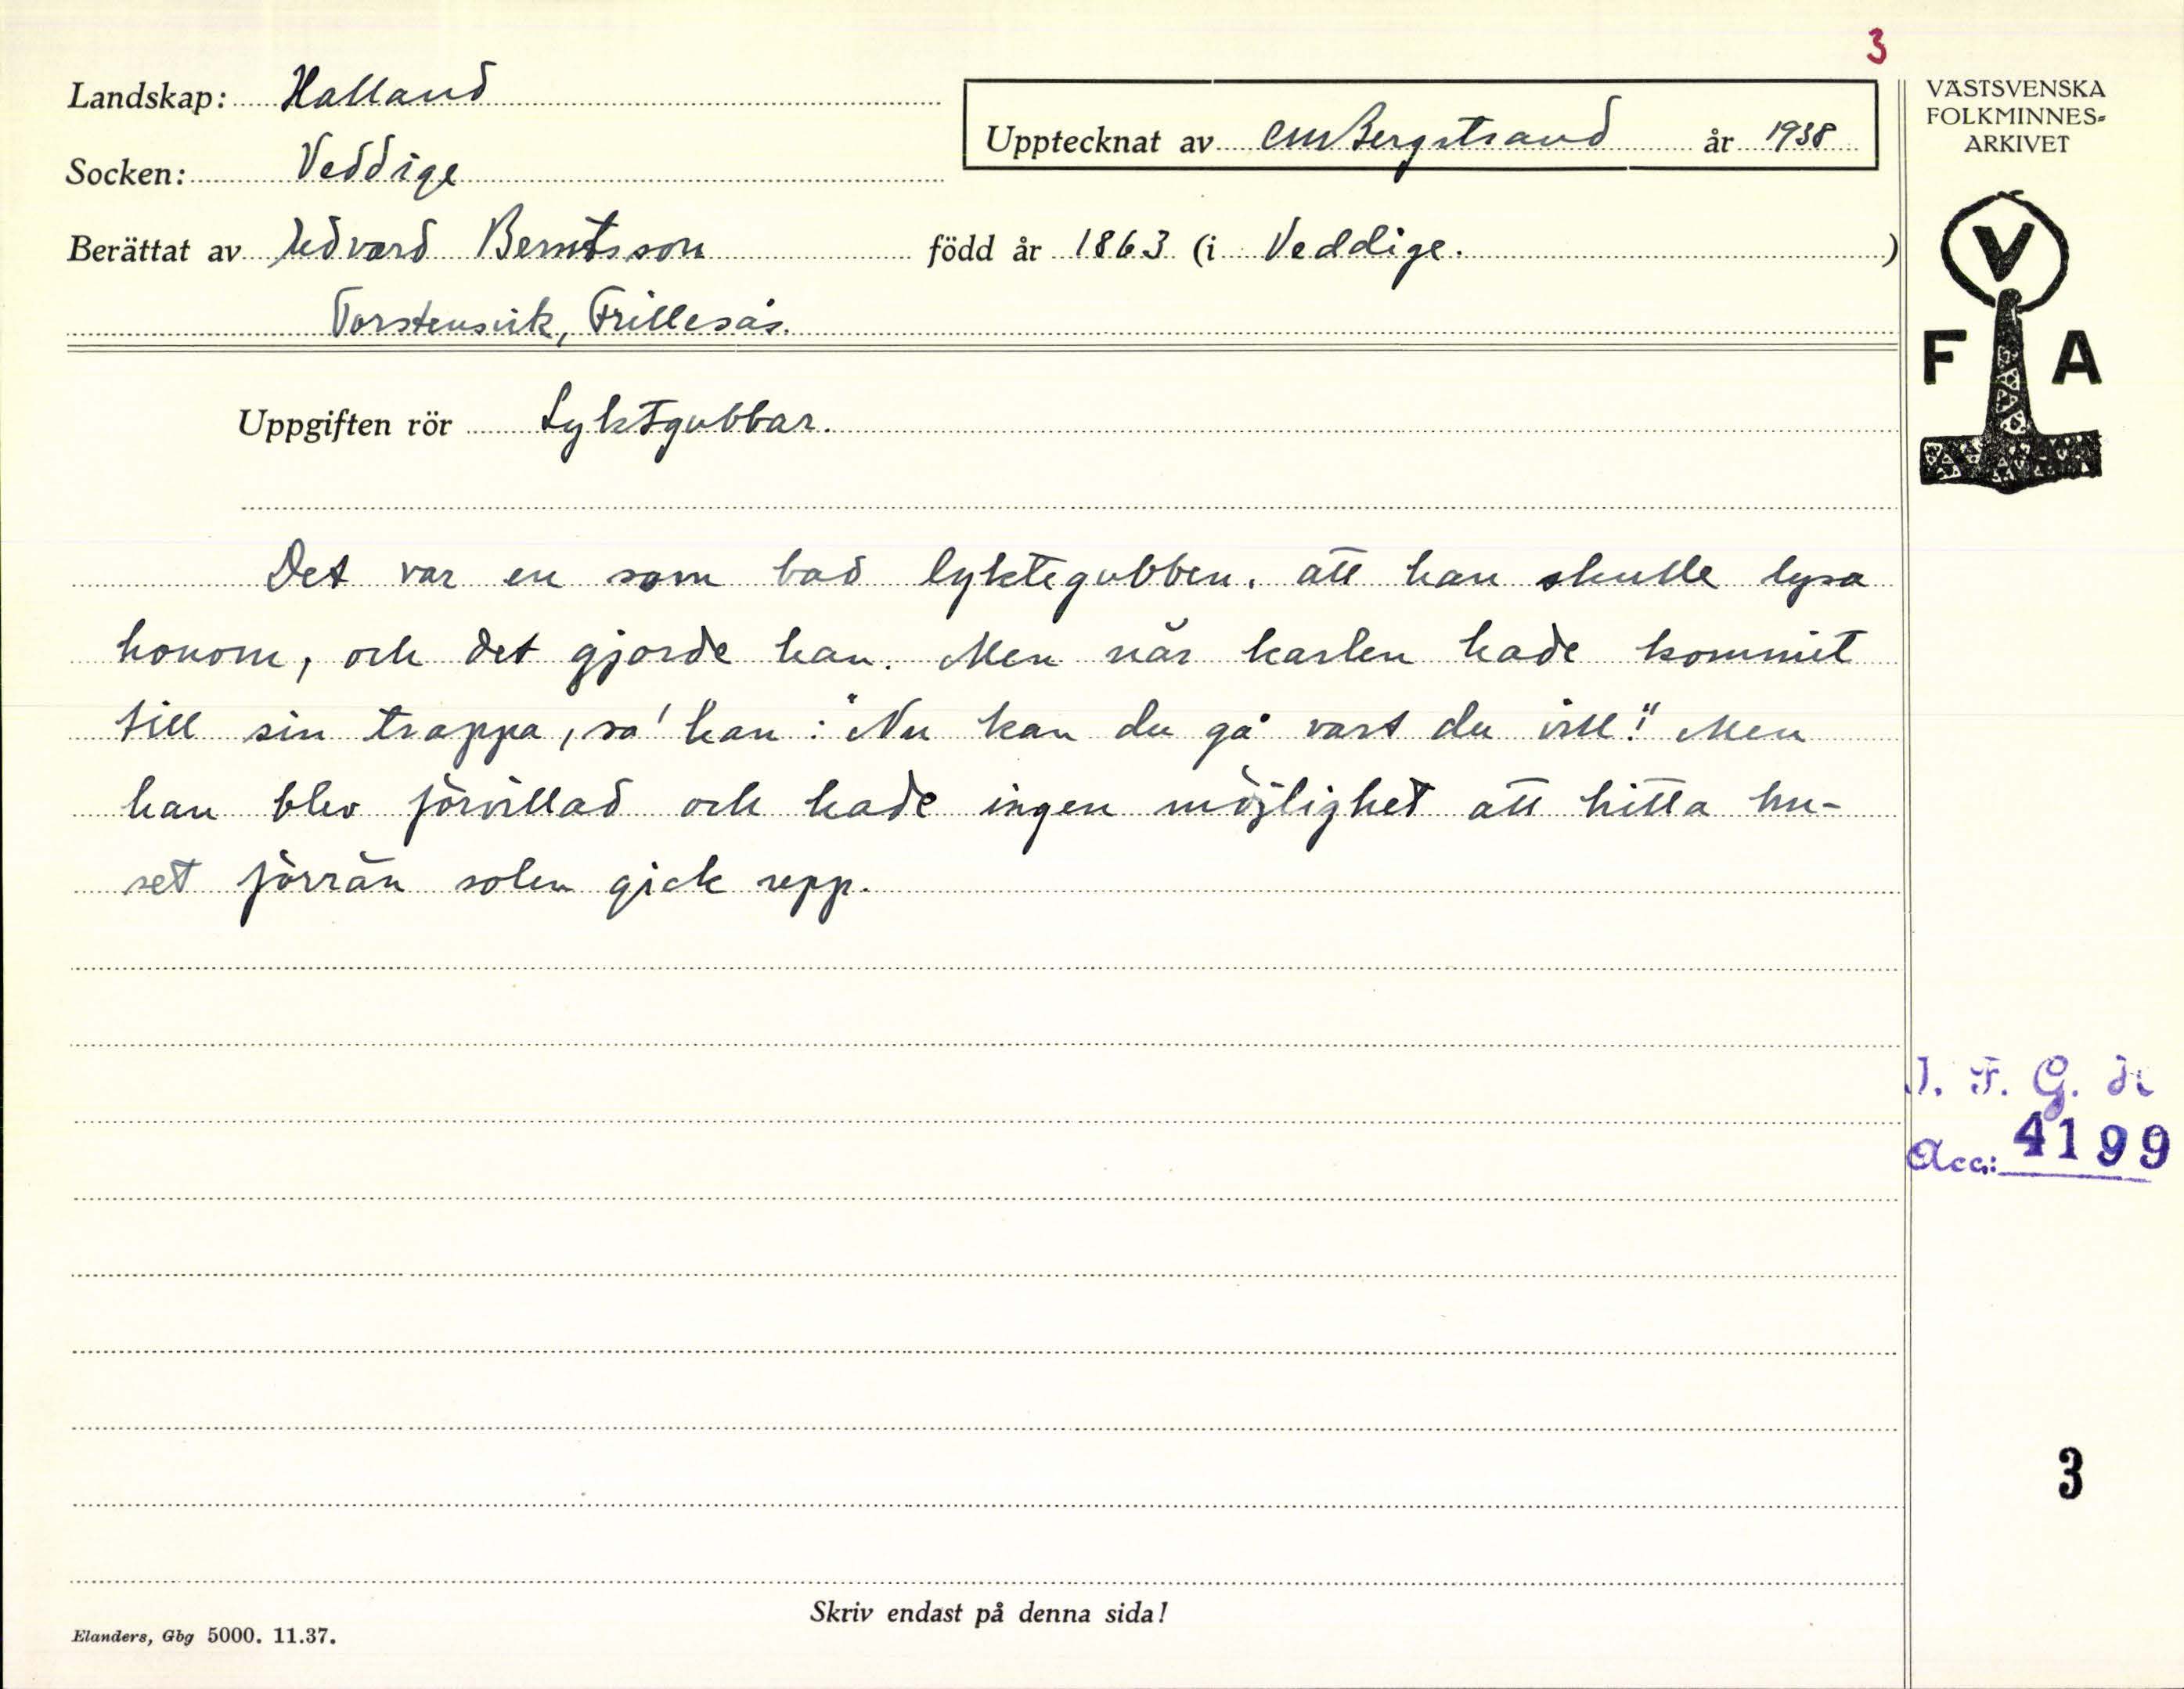 3
Landskap: Halland
Upptecknat av CM Bergstrand år 1938
VÄSTSVENSKA
FOLKMINNES-
ARKIVET
Socken: Veddige
Berättat av Edvard Berntsson född år 1863 (i Veddige.)
Torstensvik, Frillesås.
V
F A
Uppgiften rör Lyktgubbar.
Det var en som bad lyktegubben. att han skulle lysa
honom, och det gjorde han. Men när karlen hade kommit
till sin trappa, sa' han: "Nu kan du gå vart du vill!" Men
han blev förvillad och hade ingen möjlighet att hitta hu-
set förrän solen gick upp.
I. F. G. H
Acc: 4199
3
Skriv endast på denna sida!
Elanders, Gbg 5000. 11.37.